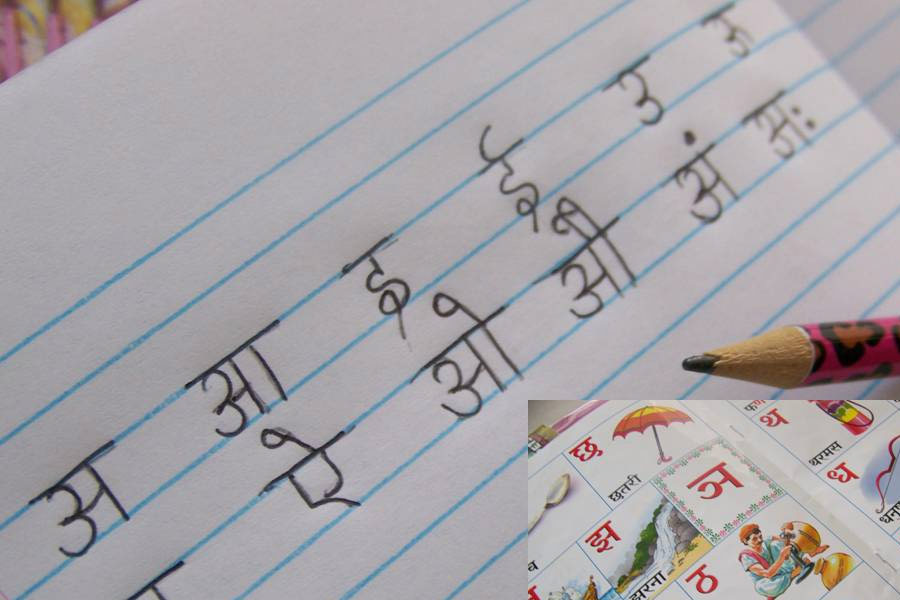 अ आ इ ई उ ऊ
ऐ ओ औ अं अः
छ
छतरी
ञ
झ
झरना
ठ
थ
थरमस
ध